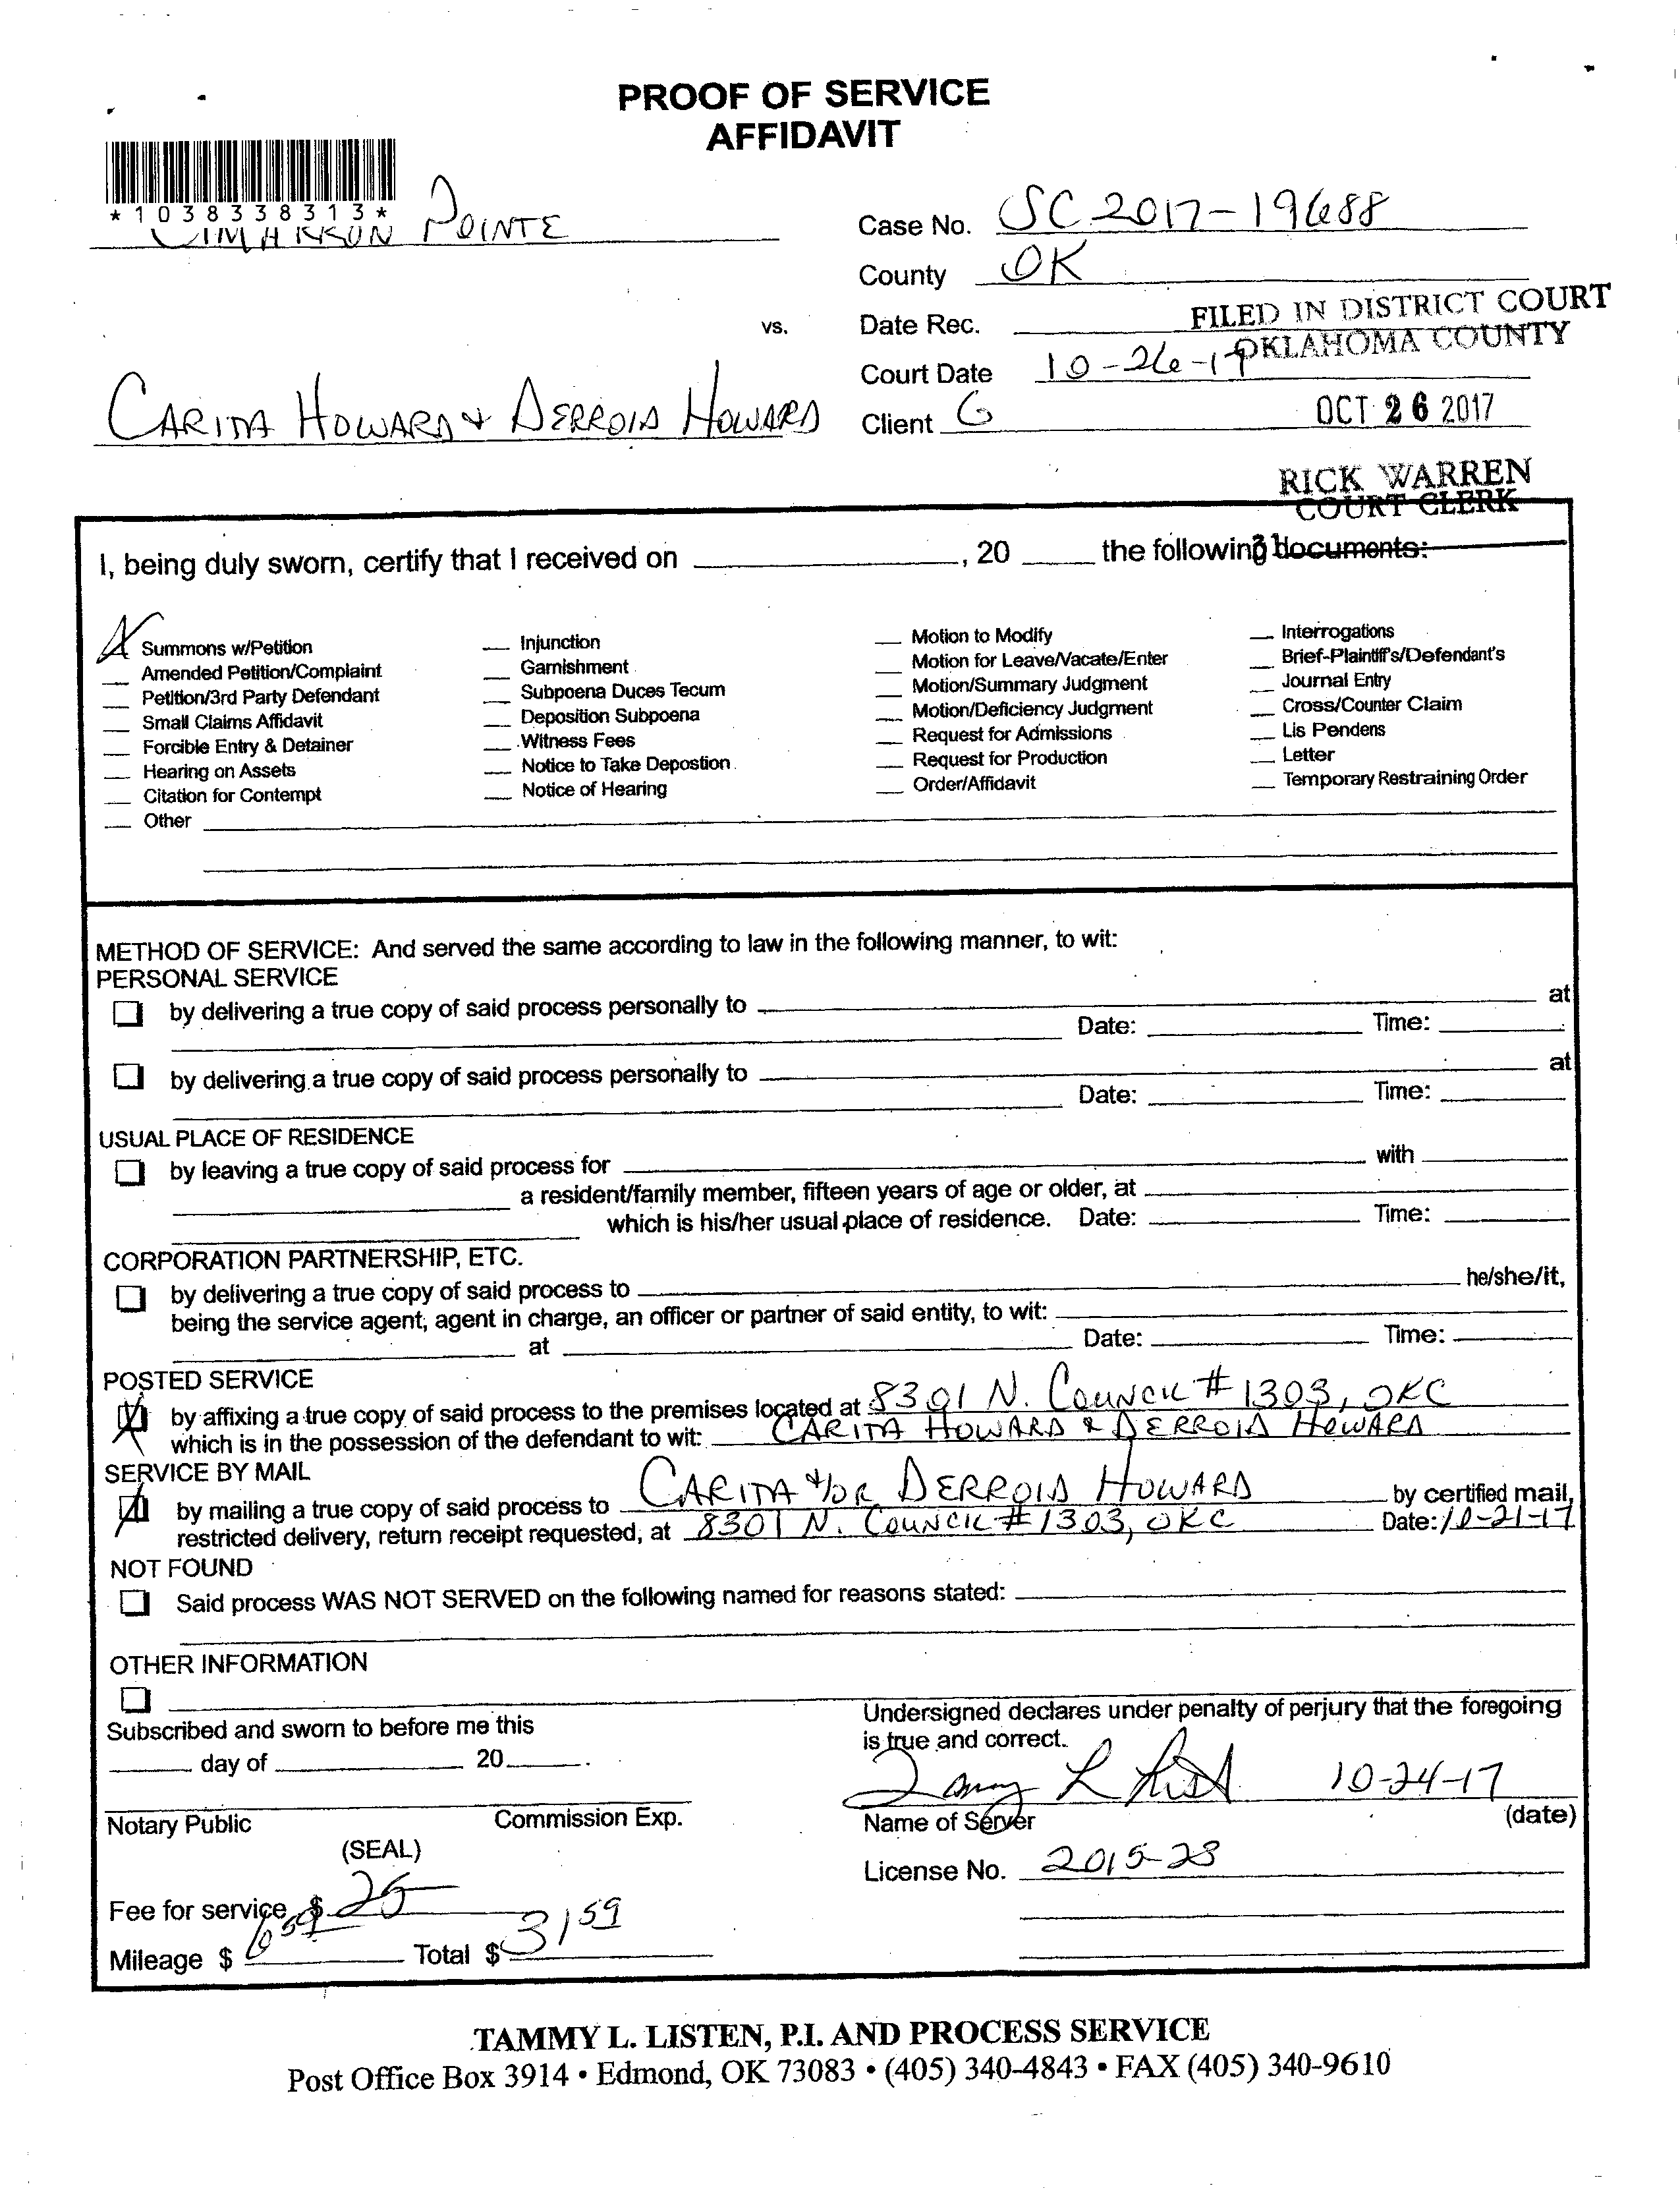 PROOF OF SERVICE
AFFIDAVIT
*1038338313*
CIMARRON POINTE
Case No. SC 2017-19688
County OK
FILED IN DISTRICT COURT
vs.
Date Rec.
OKLAHOMA COUNTY
Court Date 10-26-17
CARITA HOWARD & DERROID HOWARD
Client G
OCT 26 2017
RICK WARREN
COURT CLERK
I, being duly sworn, certify that I received on ____, 20 ____ the following documents:
Summons w/Petition
Amended Petition/Complaint
Petition/3rd Party Defendant
Small Claims Affidavit
Forcible Entry & Detainer
Hearing on Assets
Citation for Contempt
Other
Injunction
Garnishment
Subpoena Duces Tecum
Deposition Subpoena
Witness Fees
Notice to Take Depostion
Notice of Hearing
Motion to Modify
Motion for Leave/Vacate/Enter
Motion/Summary Judgment
Motion/Deficiency Judgment
Request for Admissions
Request for Production
Order/Affidavit
Interrogations
Brief-Plaintiff's/Defendant's
Journal Entry
Cross/Counter Claim
Lis Pendens
Letter
Temporary Restraining Order
METHOD OF SERVICE: And served the same according to law in the following manner, to wit:
PERSONAL SERVICE
by delivering a true copy of said process personally to ____ at
Date: ____ Time: ____
by delivering a true copy of said process personally to ____ at
Date: ____ Time: ____
USUAL PLACE OF RESIDENCE
by leaving a true copy of said process for ____ with ____
a resident/family member, fifteen years of age or older, at ____
which is his/her usual place of residence. Date: ____ Time: ____
CORPORATION PARTNERSHIP, ETC.
by delivering a true copy of said process to ____ he/she/it,
being the service agent, agent in charge, an officer or partner of said entity, to wit: ____
at ____ Date: ____ Time: ____
POSTED SERVICE
by affixing a true copy of said process to the premises located at 8301 N. COUNCIL # 1303, OKC
which is in the possession of the defendant to wit: CARITA HOWARD & DERROID HOWARD
SERVICE BY MAIL
by mailing a true copy of said process to CARITA &/OR DERROID HOWARD by certified mail,
restricted delivery, return receipt requested, at 8301 N. COUNCIL # 1303, OKC Date: 10-21-17
NOT FOUND
Said process WAS NOT SERVED on the following named for reasons stated: ____
OTHER INFORMATION
Undersigned declares under penalty of perjury that the foregoing
is true and correct.
Subscribed and sworn to before me this
____ day of ____ 20____.
10-24-17
Notary Public Commission Exp.
(SEAL)
Name of Server (date)
License No. 2015-23
Fee for service $ 25
Mileage $ 6 59 Total $ 31 59
TAMMY L. LISTEN, P.I. AND PROCESS SERVICE
Post Office Box 3914 • Edmond, OK 73083 • (405) 340-4843 • FAX (405) 340-9610